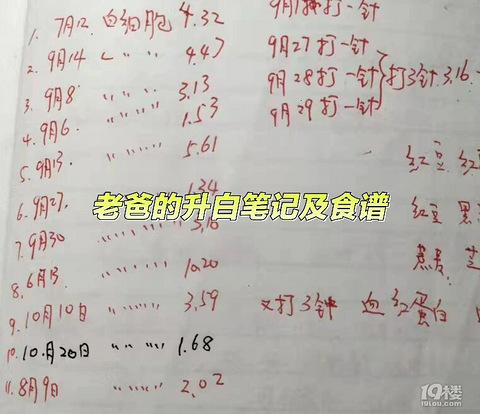 1. 7月12. 白细胞 4.32
9月1 打一针
2. 9月14 〃 〃 4.47
9月27打一针
3. 9月8 〃 〃 3.13
9月28打一针 打3针 3.16
4. 9月6. 〃 〃 1.53
9月29打一针
5. 9月13. 〃 〃 5.61
红豆. 红
6. 9月27. 1.34
老爸的升白笔记及食谱
红豆 黑
7. 9月30 〃 〃 3.16
8. 6月13. 〃 〃 10.20
9. 10月10日 〃 〃 3.59
又打3针 血红蛋白
10. 10.月20日 〃 〃 1.68
11. 8月9日 〃 〃 2.02
19楼
19lou.com